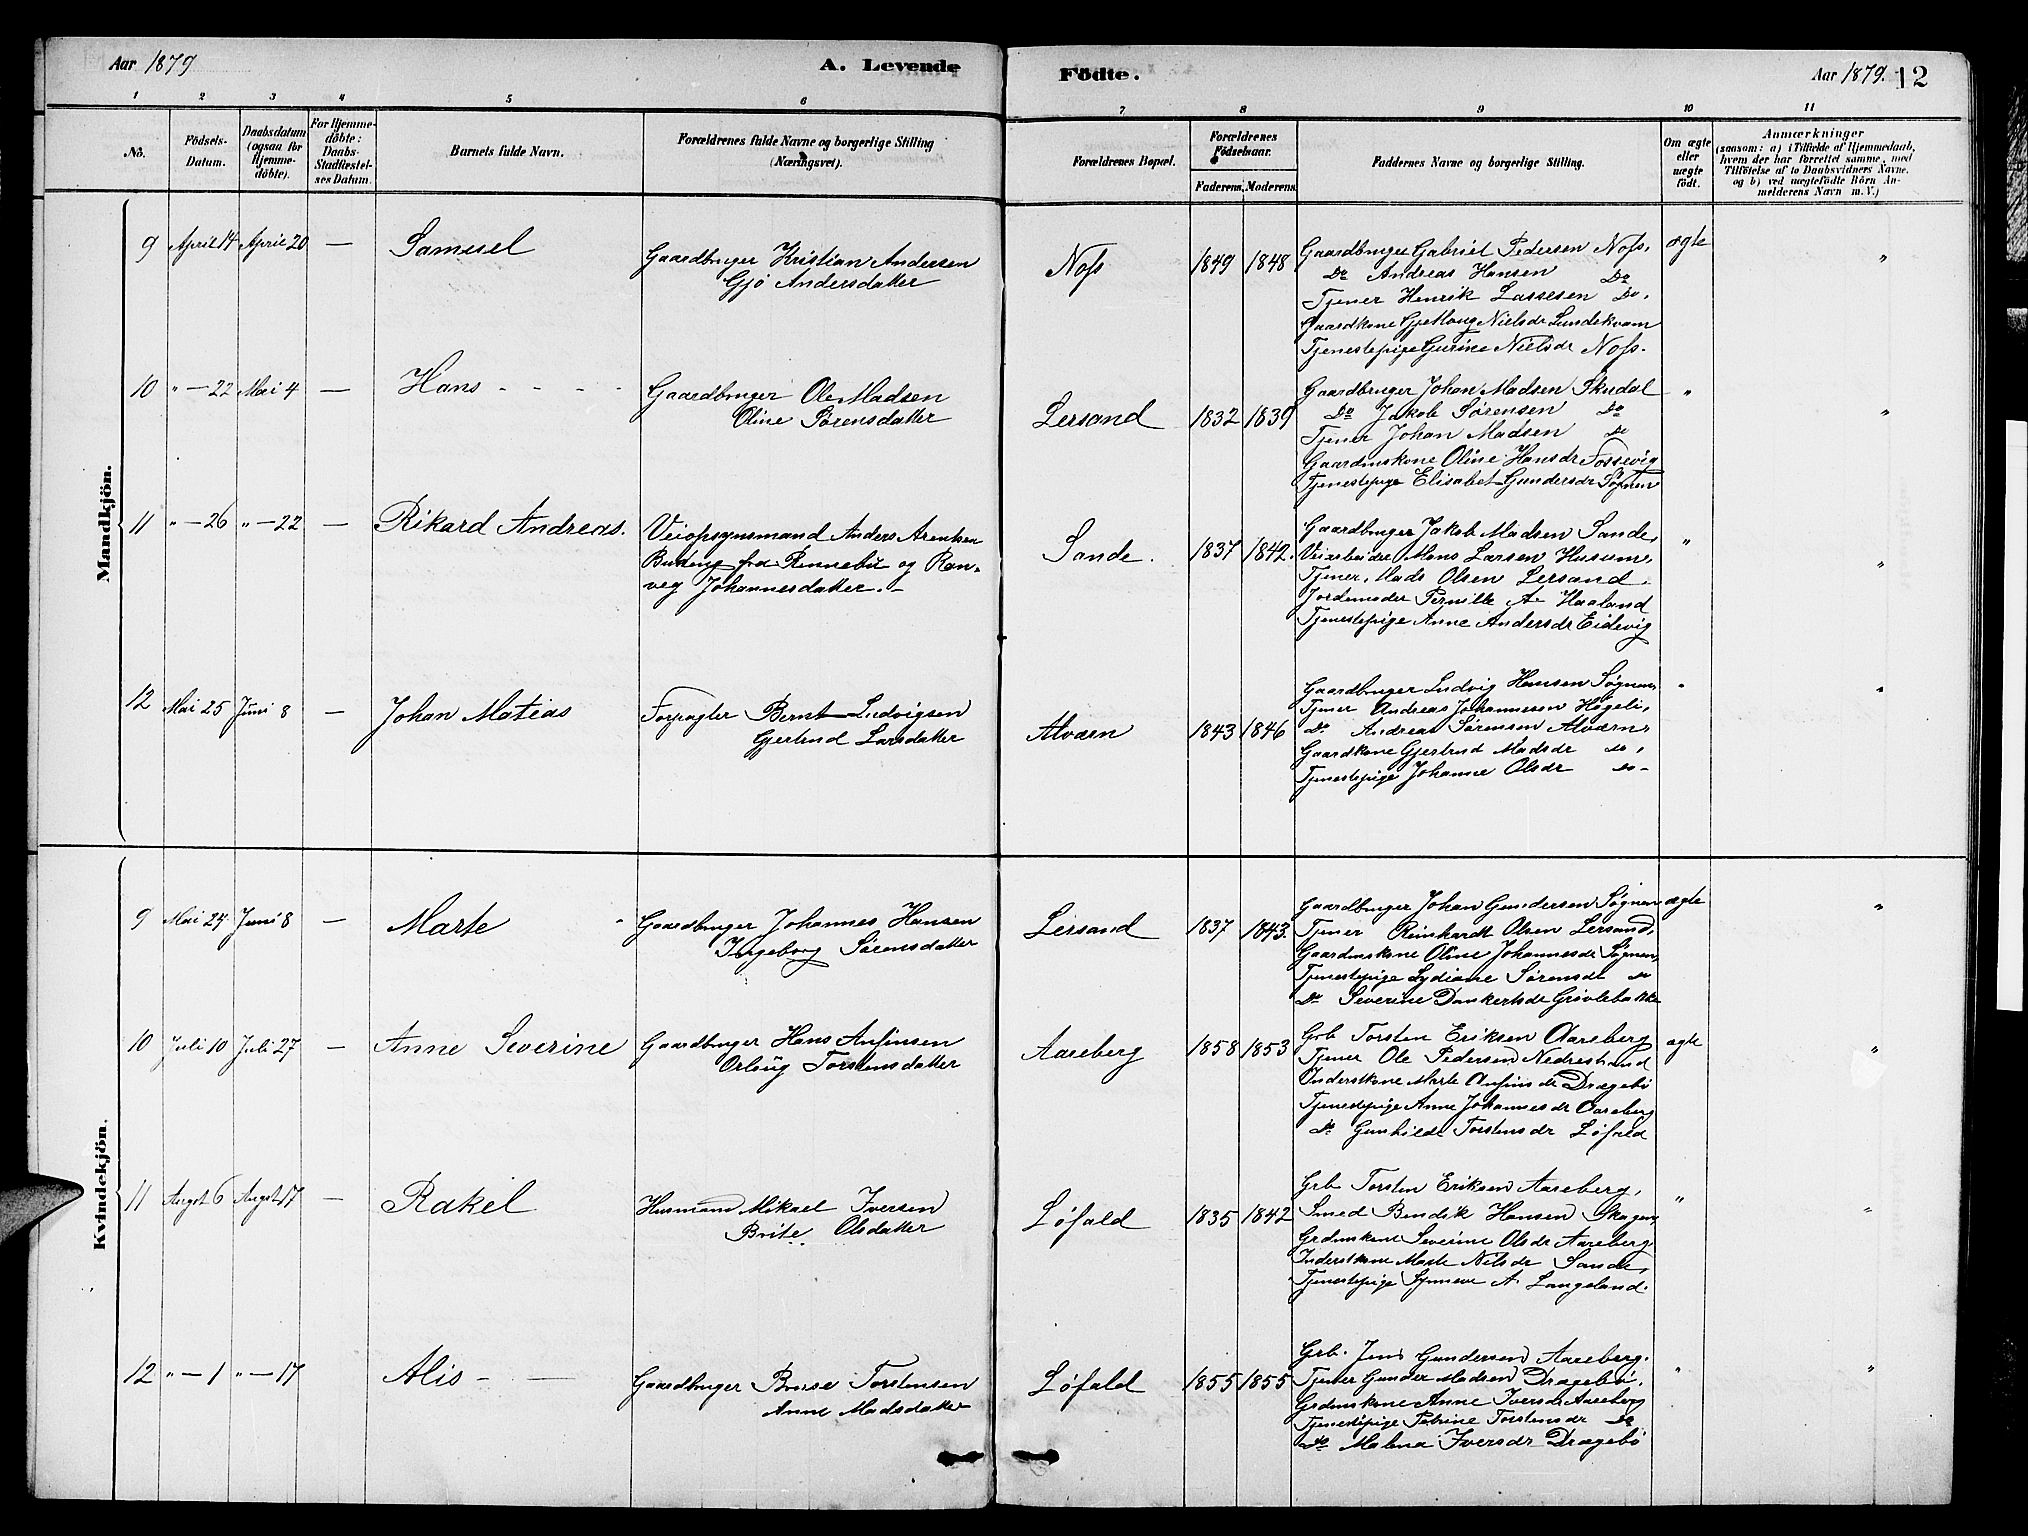 Aar 1879
A. Levende
Födte.
Aar 1879. 12
1 2 3 4 5 6 7 8 9 10 11
No.
Födsels-Datum.
Daabsdatum (ogsaa for Hjemmedöbte).
For Hjemmedöbte: Daabs-Stadfæstelses Datum.
Barnets fulde Navn.
Forældrenes fulde Navne og borgerlige Stilling (Næringsvei).
Forældrenes Bopæl.
Forældrenes Födselsaar.
Faderens. Moderens.
Faddernes Navne og borgerlige Stilling.
Om ægte eller uægte födt.
Anmærkninger
(saasom: a) i Tilfælde af Hjemmedaab, hvem der har forrettet samme, med Tilföielse af to Daabsvidners Navne, og b) ved uægtefödte Börn Anmelderens Navn m. V.)
Mandkjön.
9 April 14 April 20 — Samuel
Gaardbruger Kristian Andersen
Gjø Andersdatter
Nofs 1849 1848
Gaardbruger Gabriel Pedersen Nofs,
Do Andreas Hansen Do
Tjener Henrik Lassesen Do.
Gaardkone Nielsdr Lundekvam
Tjenestepige Gurine Nielsdr Nofs.
ægte "
10 " — 22 Mai 4 — Hans - - - -
Gaardbruger Ole Madsen
Oline Sørensdatter
Lersand 1832 1839
Gaardbruger Johan Madsen Skudal
Do Jakob Sørensen Do
Tjener Johan Madsen Do
Gaardmskone Oline Hansdr Fossevig
Tjenestepige Elisabet Gundersdr Søgnen
" "
11 " — 26 " — 22 — Rikard Andreas.
Veiopsynsmand Anders Arentsen
fra Rennebu og Ran-
veg Johannesdatter. -
Sande. 1837 1842.
Gaardbruger Jakob Madsen Sande,
Veiarbeider Mons Larsen Husum,
Tjener, Mads Olsen Lersand.
Jordemoder Pernille A. Haaland
Tjenestepige Anne Andersdr Eidevig
" "
12 Mai 25 Juni 8 — Johan Matias
Forpagter Bernt Ludvigsen
Gjertrud Larsdatter
Alværn 1843 1846
Gaardbruger Ludvig Hansen Søgnen,
Tjener Andreas Johannesen Høgeli,
do. Andreas Sørensen Alværn,
Gaardkone Gjertrud Madsdr do,
Tjenestepige Johanne Olsdr do-
" "
Kvindekjön.
9 Mai 24 Juni 8 — Marte -
Gaardbruger Johannes Hansen
Ingeborg Sørensdatter
Lersand 1837 1843.
Gaardbruger Johan Gundersen Søgnen
Tjener Reinhardt Olsen Lersand,
Gaardmskone Oline Johannesdr Søgnen,
Tjenestepige Lydiane Sørensdr do
Do Severine Dankertsdr Grivlebakke
ægte "
10 Juli 10 Juli 27 — Anne Severine
Gaardbruger Hans Anfinsen
Orlaug Torstensdatter
Aareberg 1858 1853
Grb Torsten Eriksen Aareberg
Tjener Ole Pedersen Nedrestrand
Inderstkone Marte Anfinsdr Drægebø
Tjenestepige Anne Johannesdr Aareberg
do Gunhilde Torstensdr Løfald
ægte "
11 Augst 6 Augst 17 — Rakel
Husmand Mikael Iversen
Brite Olsdatter
Løfald 1835 1842
Grb Torsten Eriksen Aareberg,
Smed Bendik Hansen Skagen,
Grdmskone Severine Olsdr Aareberg
Inderstkone Marte Nilsdr Sande,
Tjenestepige Synneve A. Langeland.
" "
12 " — 1 " — 17 Alis - —
Gaardbruger Torstensen
Anne Madsdatter
Løfald 1855 1855
Grb. Jens Gundersen Aareberg.
Tjener Gunder Madsen Drægebø,
Grdmskone Anne Iversdr Aareberg
Tjenestepige Petrine Torstensdr Do
do Malene Iversdr Drægebø
" "